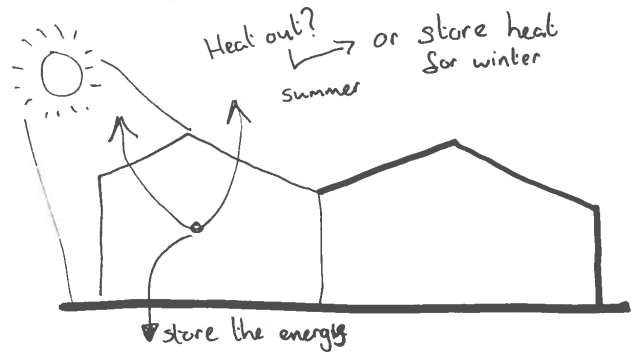 Heat out?
or store heat
for winter
summer
store the energy